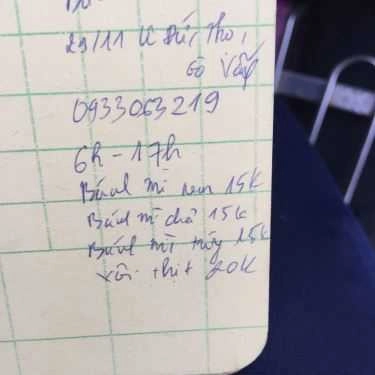 29/11 Lê Đức Thọ,
Gò Vấp
0933063219
6h - 17h
Bánh mì nem 15K
Bánh mì chả 15K
Bánh mì trứng 15K
Xôi thịt 20K